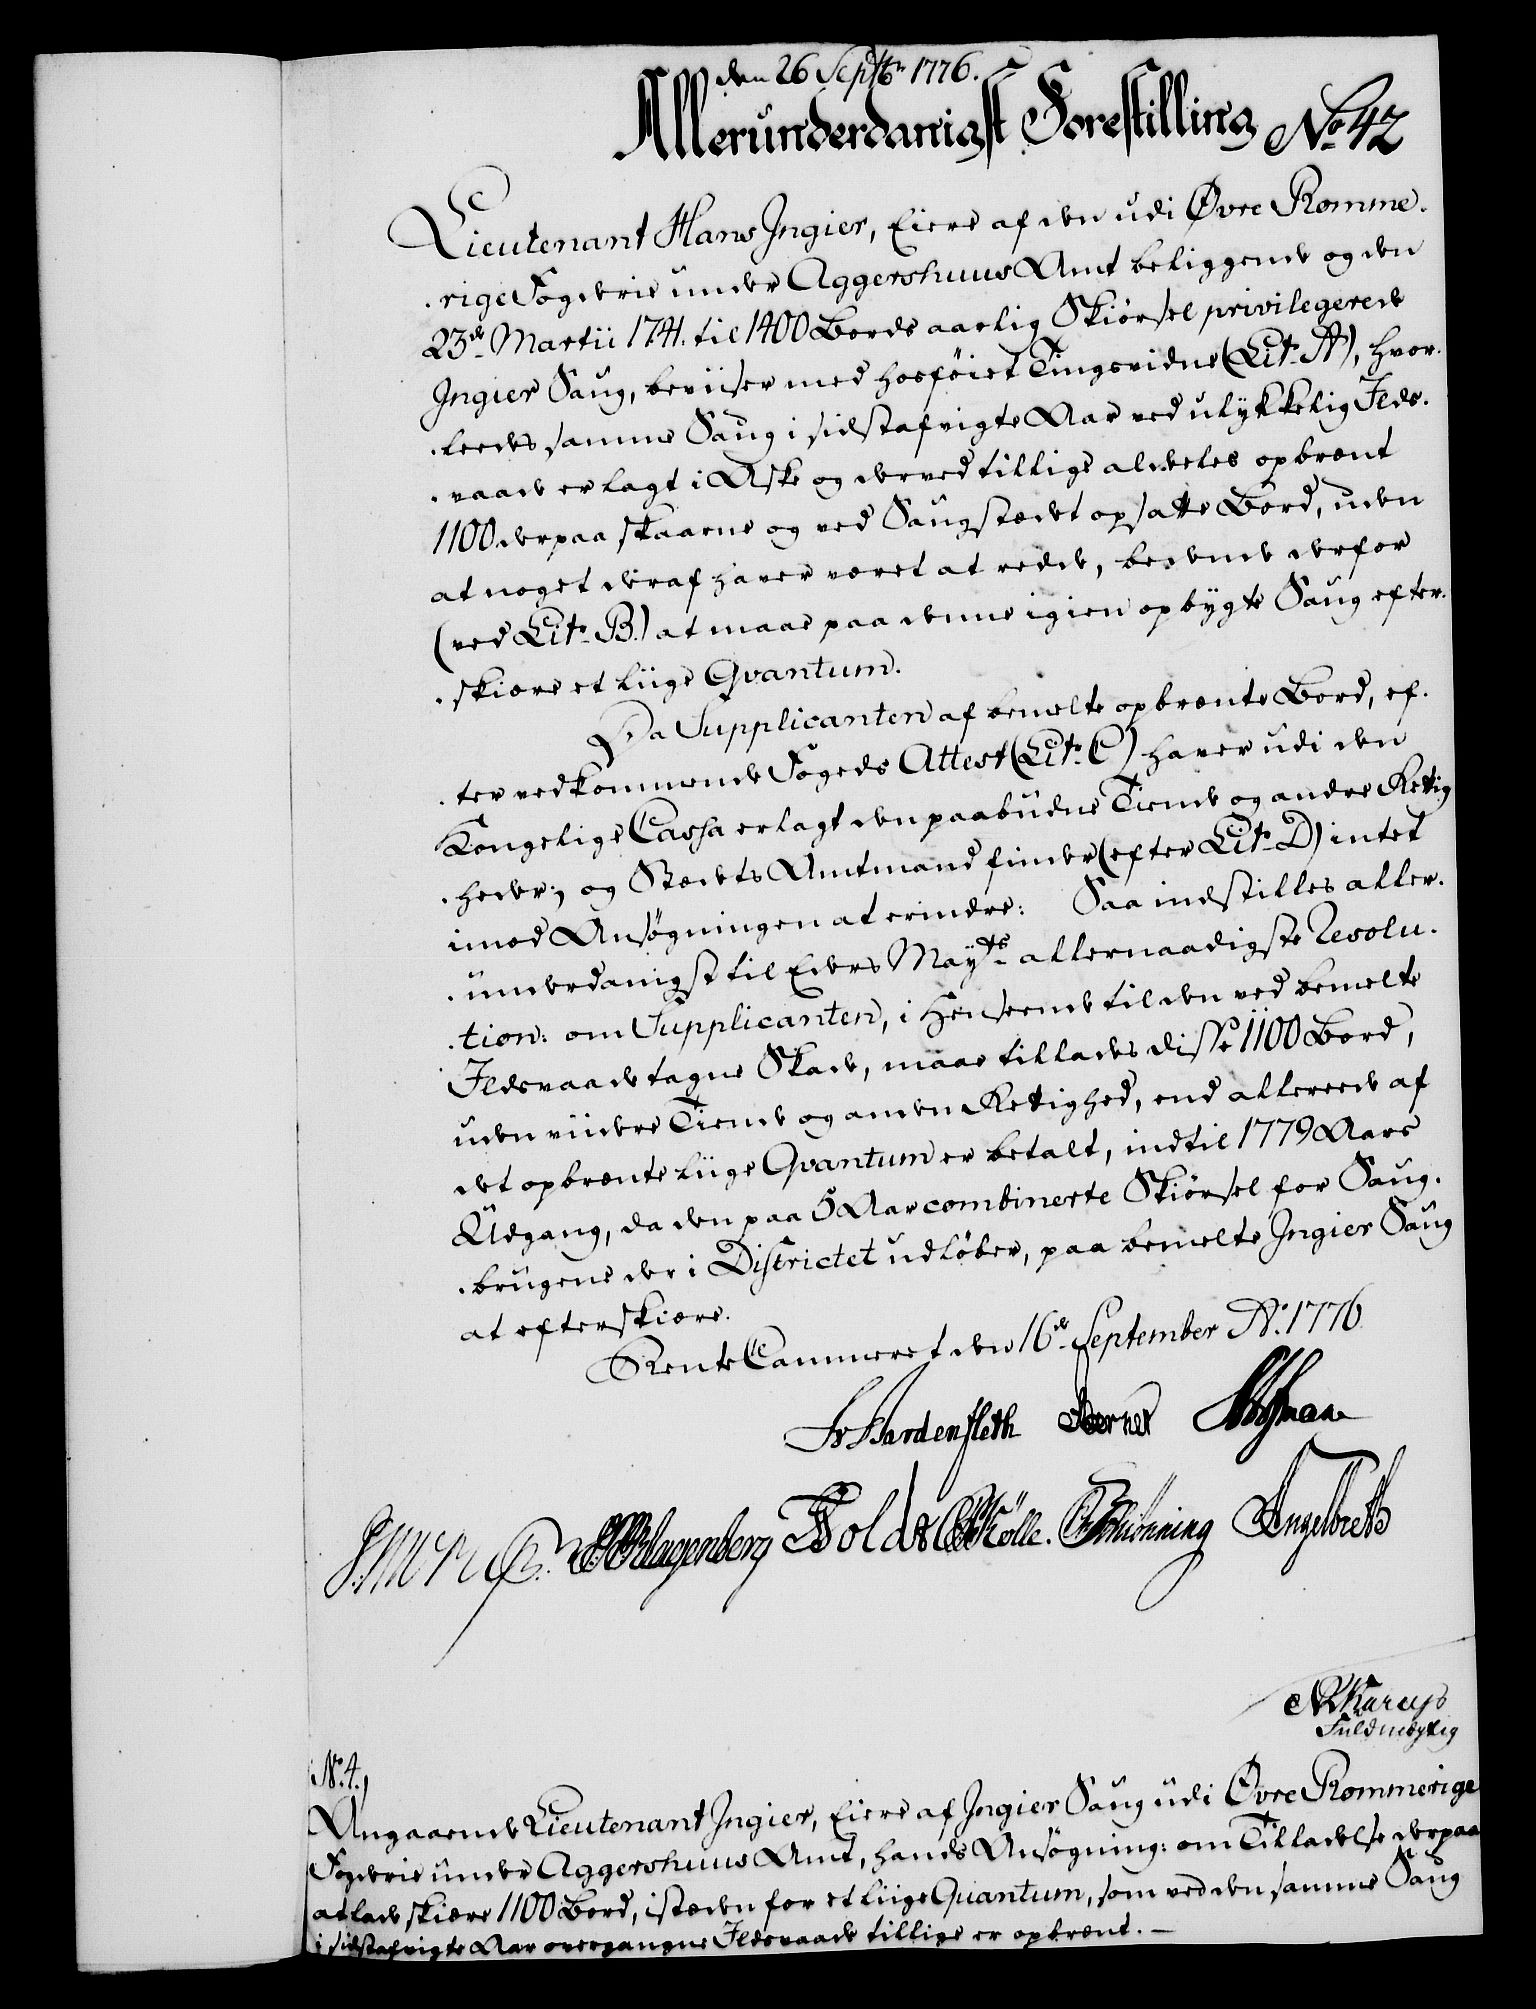 den 26 Septbr 1776.
Allerunderdanigst Forestilling No 42
Lieutenant Hans Ingier, Eiere af den udi Øvre Romme-
rige Fogderie under Aggershuus Amt beliggende og den
23de Martii 1741. til 1400 Bords aarlig Skiørsel privilegerede
Ingier Saug, beviiser med hosføiet Tingsvidne (Litr. A), hvor-
leedes samme Saug i sidstafvigte Aar ved ulykkelig Ilds-
vaade er lagt i Aske og derved tillige aldeeles opbrent
1100 derpaa skaarne og ved Saugstædet opsatte Bord, uden
at noget deraf haver været at redde, bedende derfor
(ved Litr. B.) at maae paa denne igien opbygte Saug efter-
skiære et liige Qvantum.
Da Supplicanten af bemelte opbrente Bord, ef-
ter vedkommende Fogeds Attest (Litr. C) haver udi den
Kongelige Cassa erlagt den paabudne Tiende og andre Rettig-
heder, og Stædets Amtmand finder (efter Litr. D) intet
imod Ansøgningen at erindre: Saa indstilles aller-
underdanigst til Eders Mayts allernaadigste Resolu-
tion: om Supplicanten, i Henseende til den ved bemelte
Ildsvaade tagne Skade, maae tillades disse 1100 Bord,
uden viidere Tiende og anden Rettighed, end allereede af
det opbrente liige Qvantum er betalt, indtil 1779 Aars
Udgang, da den paa 5 Aar combinerte Skiørsel for Saug-
brugene der i Districtet udløber, paa bemelte Ingier Saug
at efterskiære.
Rente Cammeret den 16de September Ao. 1776
Fr Bardenfleth Berner
Klagenberg Kølle. Schiønning Engelbreth
Fuldmægtig
No. 4.)
Angaaende Lieutenant Ingier, Eiere af Ingier Saug udi Øvre Rommerige
Fogderie under Aggershuus Amt, hands Ansøgning: om Tilladelse derpaa
at lade skiære 1100 Bord, istæden for et liige Quantum, som ved den samme Saug
i sidstafvigte Aar overgangne Ildsvaade tillige er opbrent. —